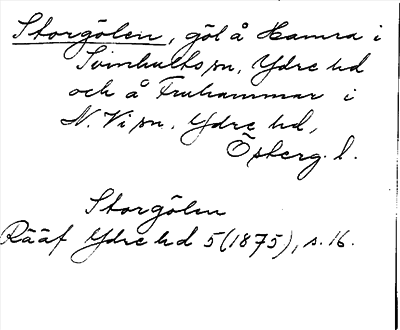 Storgölen, göl å Hamra i
Svinhults sn, Ydre hd
och å Fruhammar i
N. Vi sn, Ydre hd,
Östergl.
Storgölen
Rääf Ydre hd 5 (1875), s. 16.